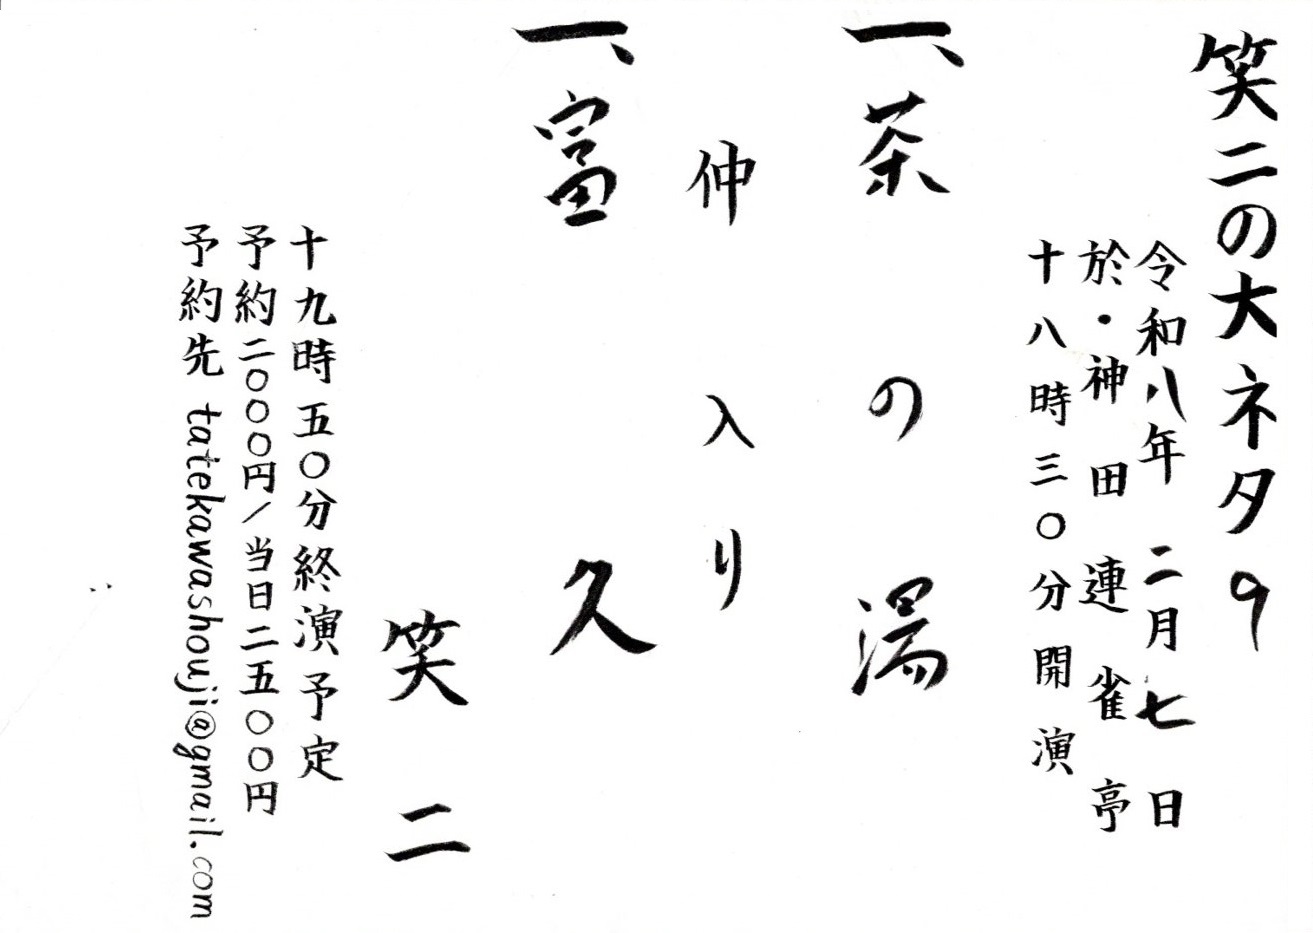 笑二の大ネタ9
令和八年 二月七日
於・神田連雀亭
十八時三〇分開演
一、茶の湯
仲入り
一、富久
笑二
十九時五〇分終演予定
予約二〇〇〇円/当日二五〇〇円
予約先 tatekawashouji@gmail.com